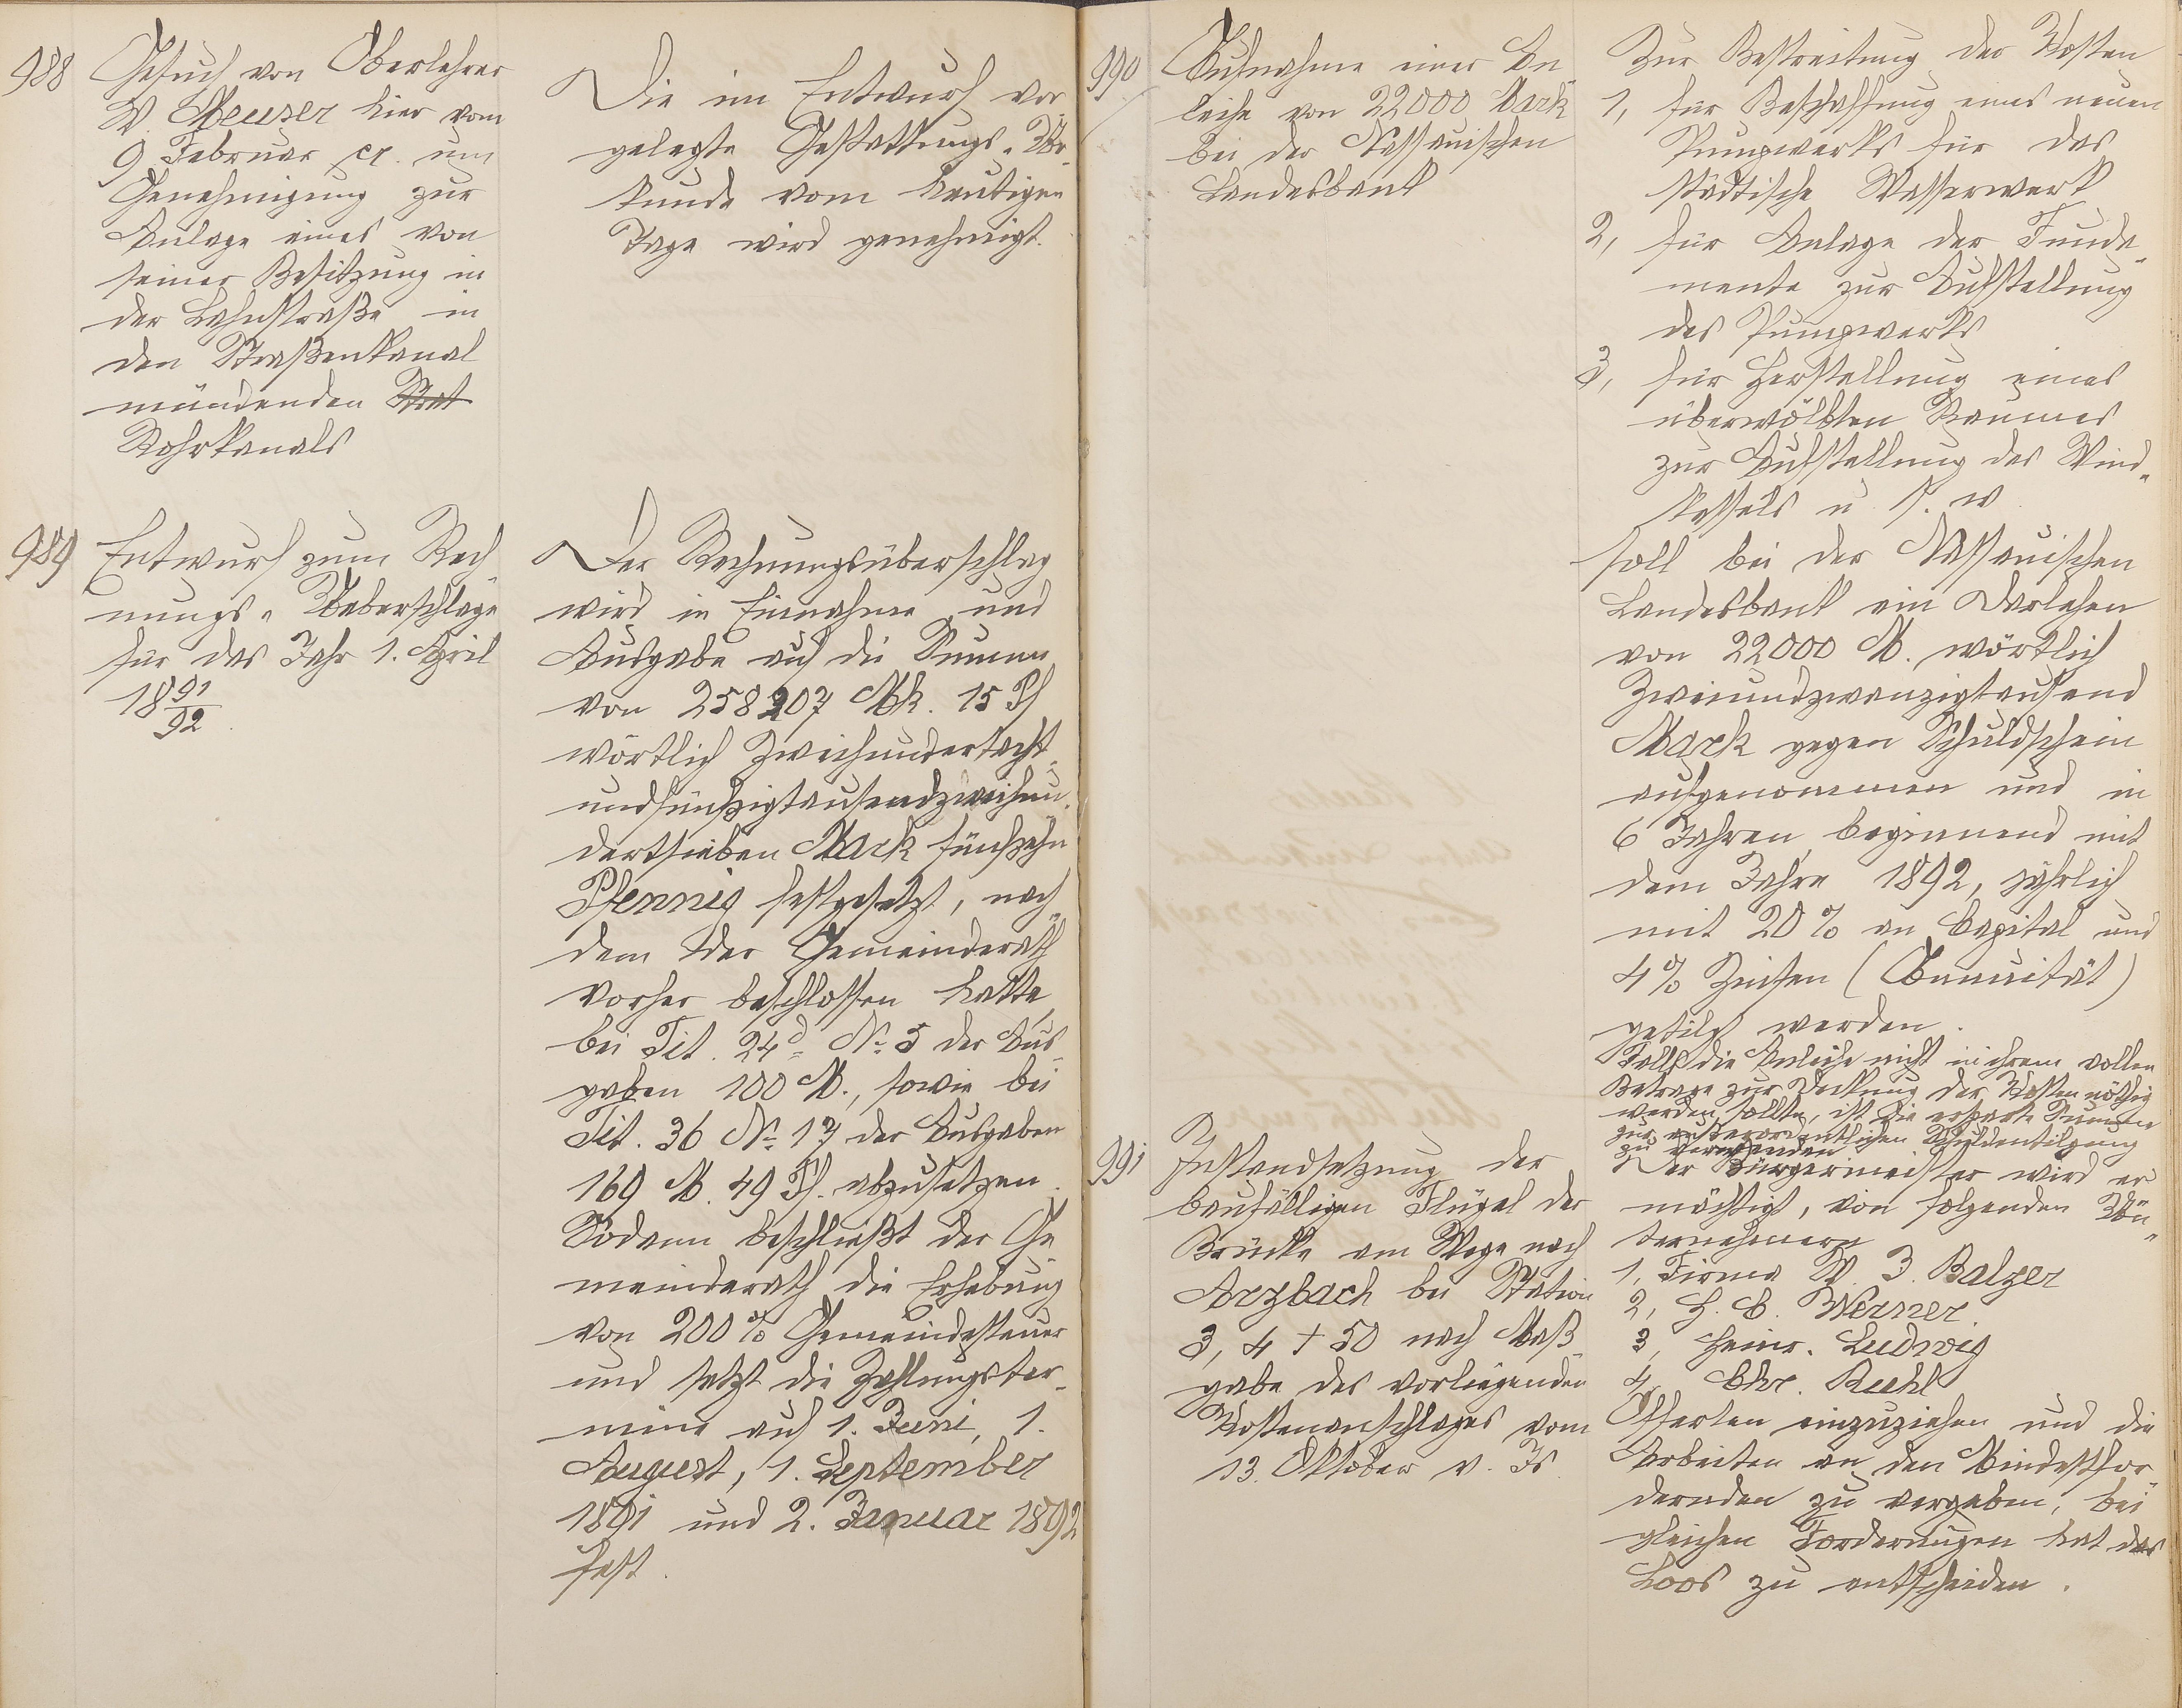 988
Gesuch von Oberlehrer
W. Meuser hier vom
9 Februar cr. um
Genehmigung zur
Anlage eines von
seiner Besitzung in
der Lahnstraße in
den Straßenkanal
mündenden Strat
Rohrkanals
Die im Entwurf vor
gelegte Gestattungs-Ur-
kunde vom heutigen
Tage wird genehmigt.
989
Entwurf zum Rech
nungs-Ueberschlage
für das Jahr 1. April
1891/92.
Der Rechnungsüberschlag
wird in Einnahme und
Ausgabe auf die Summe
von 258207 Mk. 15 Pf
wörtlich Zweihundertacht-
undfünfzigtausendzweihun-
dertsieben Mark fünfzehn
Pfennig festgesetzt, nach-
dem der Gemeinderath
vorher beschlossen hatte,
bei Tit. 24d No 5 der Aus-
gaben 100 M., sowie bei
Tit. 36 No 17 der Ausgaben
169 M. 49 Pf. abzusetzen.
Sodann beschließt der Ge
meinderath die Erhebung
von 200% Gemeindesteuer
und setzt die Zahlungster-
mine auf 1. Juni, 1.
August, 1. September
1891 und 2. Januar 1892
fest.
990
Aufnahme einer An-
leihe von 22000 Mark
bei der Nassauischen
Landesbank
Zur Bestreitung der Kosten
1, für Beschaffung eines neuen
Pumpwerks für das
städtische Wasserwerk
2, für Anlage der Funda-
mente zur Aufstellung
des Pumpwerks
3, für Herstellung eines
überwölbten Raumes
zur Aufstellung des Wind-
kessels u. s. w
soll bei der Nassauischen
Landesbank ein Darlehen
von 22000 M. wörtlich
Zweiundzwanzigtausend
Mark gegen Schuldschein
aufgenommen und in
6 Jahren, beginnend mit
dem Jahre 1892, jährlich
mit 20% an Capital und
4% Zinsen (Annuität)
getilgt werden.
Falls die Anleihe nicht in ihrem vollen
Betrage zur Deckung der Kosten nöthig
werden sollte, ist die ersparte Summe
zur außerordentlichen Schuldentilgung
zu verwenden
991
Instandsetzung der
baufälligen Flügel der
Brücke am Wege nach
Arzbach bei Station
3, 4 + 50 nach Maß-
gabe des vorliegenden
Kostenanschlages vom
13. Oktober v. Js.
Der Bürgermeister wird er
mächtigt, von folgenden Un-
ternehmern
1, Firma W. J. Balzer
2, H. C. Werner
3, Heinr. Ludwig
4, Chr. Ruhl
Offerten einzuziehen und die
Arbeiten an den Mindestfor-
dernden zu vergeben, bei
gleichen Forderungen hat das
Loos zu entscheiden.